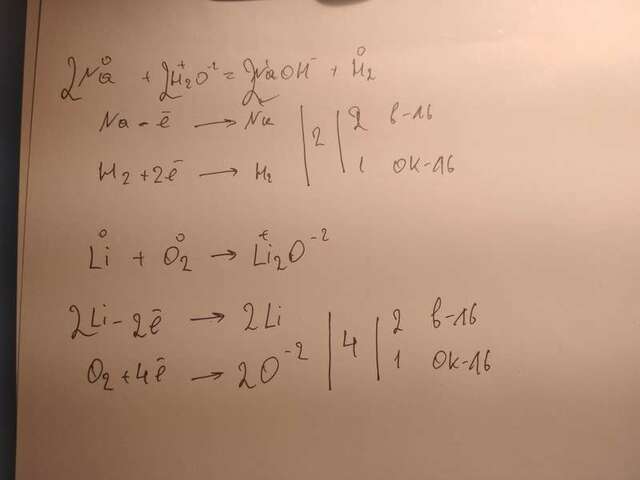 2Na⁰ + 2H₂⁺O⁻² = 2Na⁺OH⁻ + H₂⁰
Na - ē → Na | 2 | 2 в-ль
H₂ + 2ē → H₂ | 1 ок-ль
Li⁰ + O₂⁰ → Li₂⁺O⁻²
2Li - 2ē → 2Li | 4 | 2 в-ль
O₂ + 4ē → 2O⁻² | 1 ок-ль